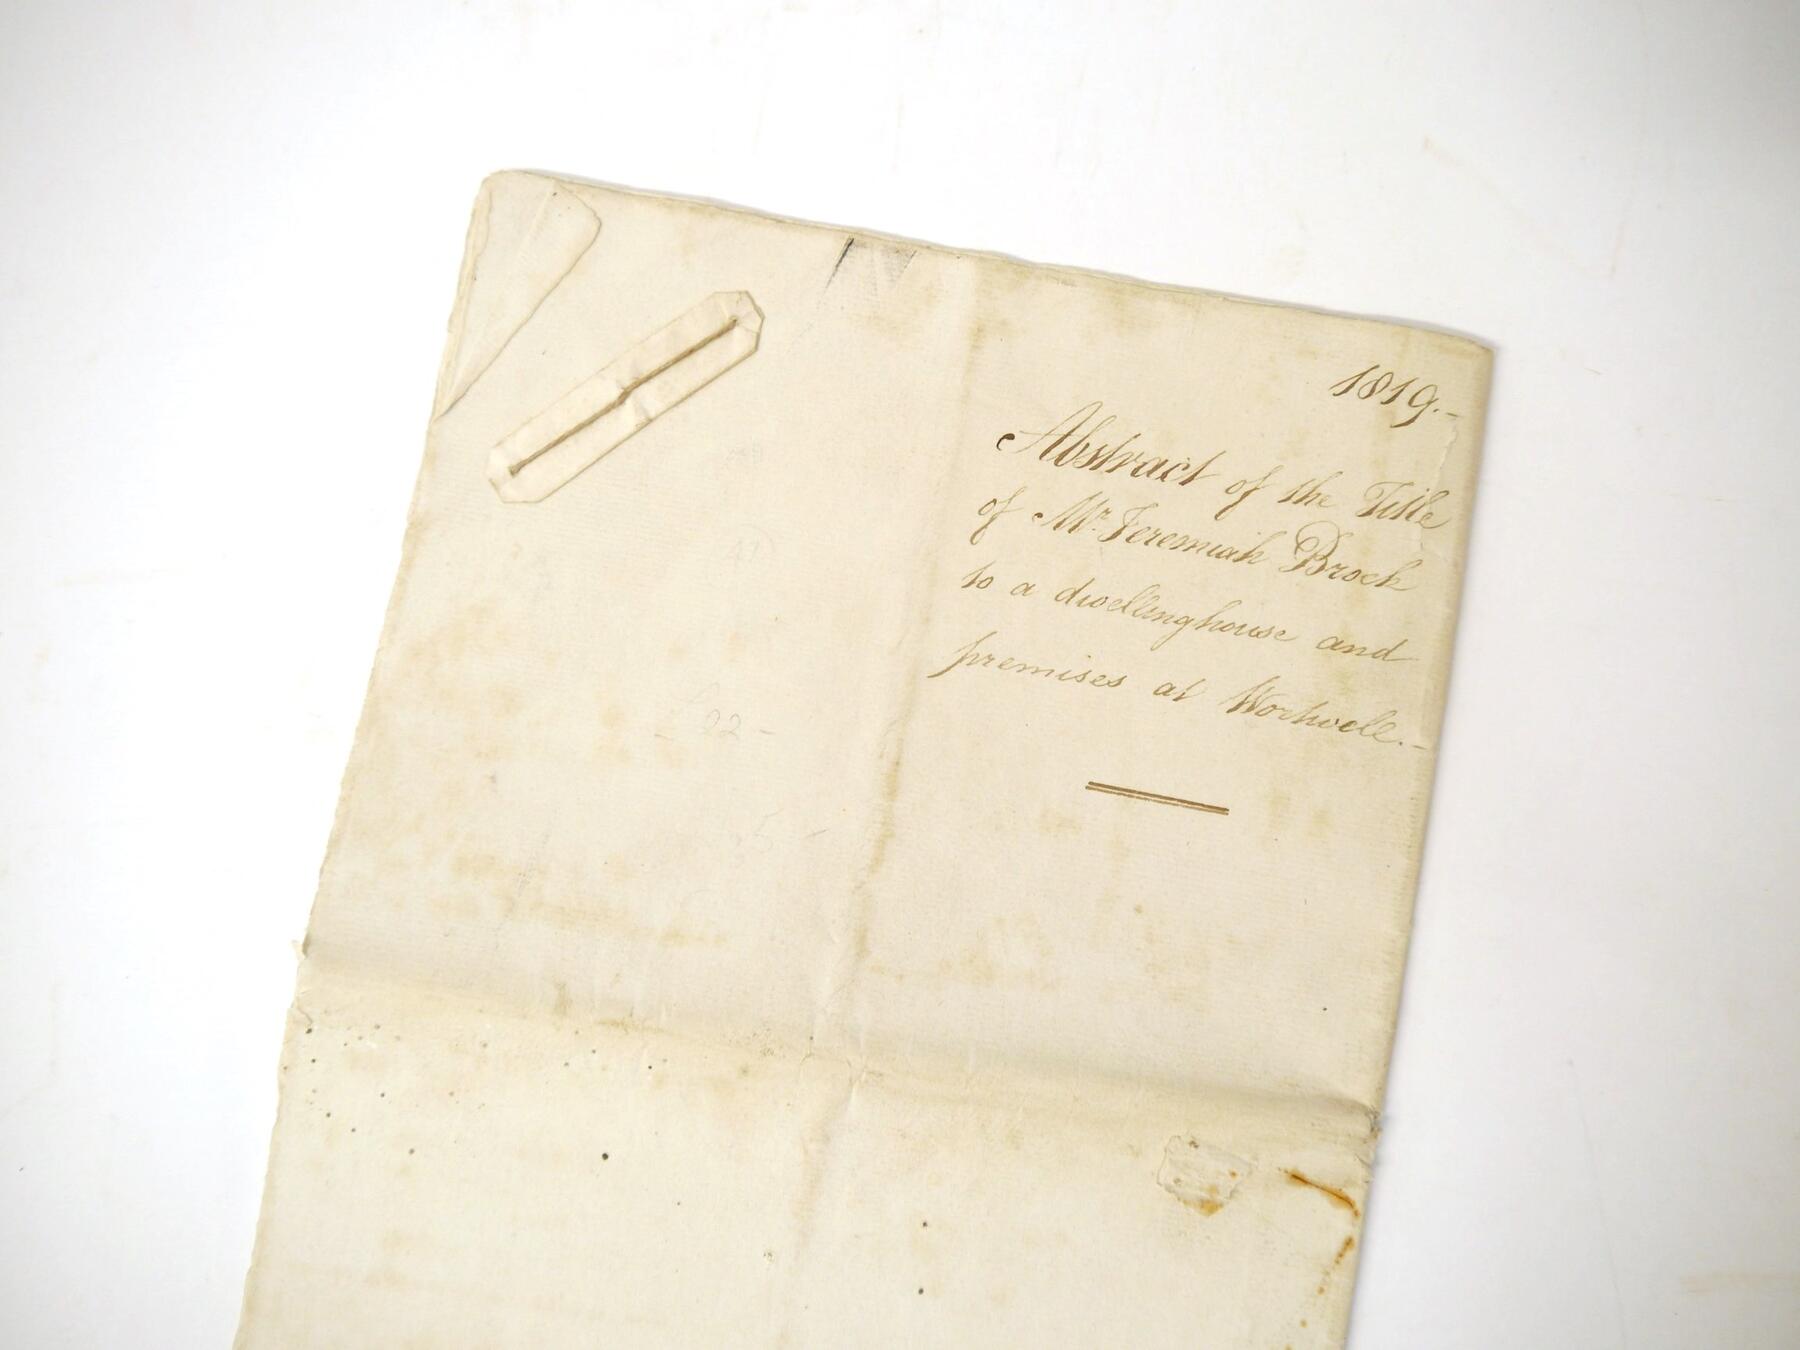 1819.-
Abstract of the Title
of Mr Jeremiah Brock
to a dwellinghouse and
premises at Wortwell.-
£22-
5-